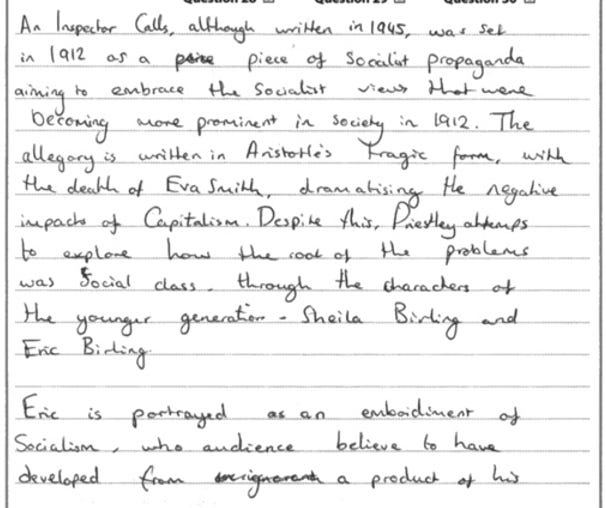 An Inspector Calls, although written in 1945, was set
in 1912 as a piece of Socialist propaganda
aiming to embrace the Socialist views that were
becoming more prominent in society in 1912. The
allegory is written in Aristotle's Tragic form, with
the death of Eva Smith, dramatising the negative
impacts of Capitalism. Despite this, Priestley attemps
to explore how the root of the problems
was Social class, through the characters of
the younger generation - Sheila Birling and
Eric Birling.
Eric is portrayed as an emboidiment of
Socialism, who audience believe to have
developed from a product of his